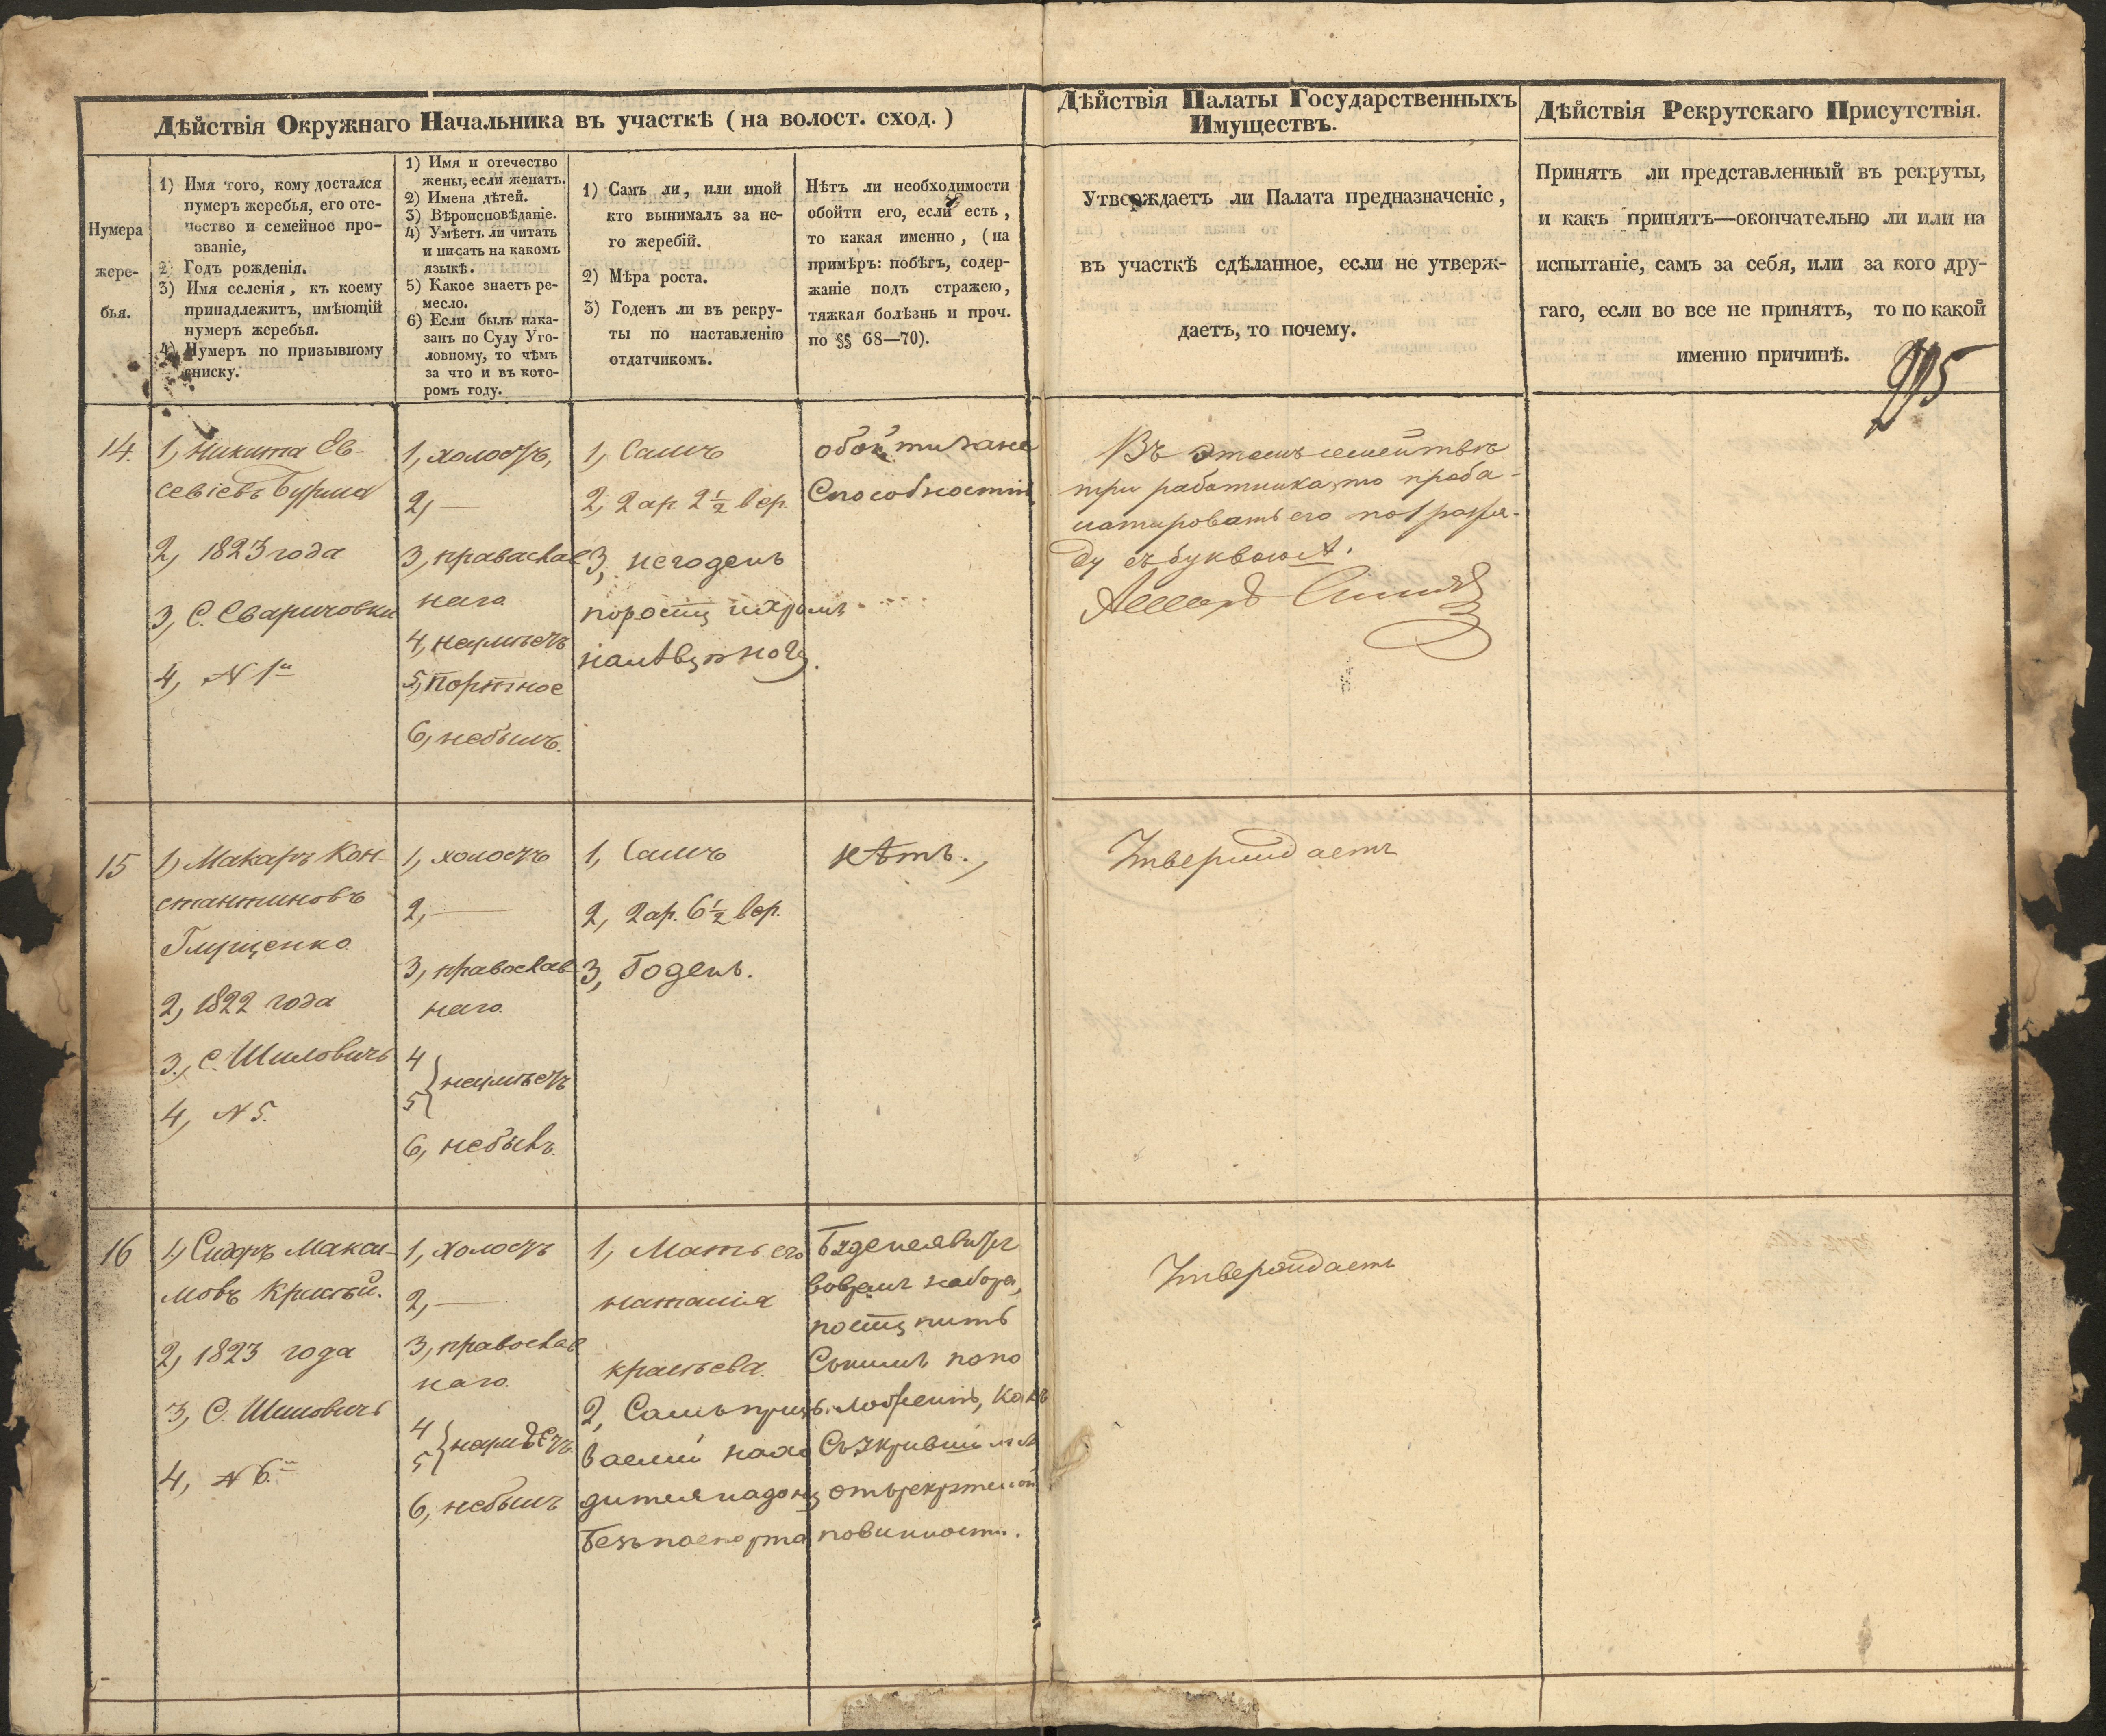 Дѣйствія Окружнаго Начальника въ участкѣ (на волост. сход.)
Дѣйствія Палаты Государственныхъ
Имуществъ.
Дѣйствія Рекрутскаго Присутствія.
Нумера
жере-
бья.
1) Имя того, кому достался
нумеръ жеребья, его оте-
чество и семейное про-
званіе,
2) Годъ рожденія.
3) Имя селенія, къ коему
принадлежитъ, имѣющій
нумеръ жеребья.
4) Нумеръ по призывному
списку.
1) Имя и отечество
жены, если женатъ.
2) Имена дѣтей.
3) Вѣроисповѣданіе.
4) Умѣетъ ли читать
и писать на какомъ
языкѣ.
5) Какое знаетъ ре-
месло.
6) Если былъ нака-
занъ по Суду Уго-
ловному, то чѣмъ
за что и въ кото-
ромъ году.
1) Самъ ли, или иной
кто вынималъ за не-
го жеребій.
2) Мѣра роста.
3) Годенъ ли въ рекру-
ты по наставленію
отдатчикомъ.
Нѣтъ ли необходимости
обойти его, если есть,
то какая именно, (на
примѣръ: побѣгъ, содер-
жаніе подъ стражею,
тяжкая болѣзнь и проч.
по §§ 68—70).
Утверждаетъ ли Палата предназначеніе,
въ участкѣ сдѣланное, если не утверж-
даетъ, то почему.
Принятъ ли представленный въ рекруты,
и какъ принятъ—окончательно ли или на
испытаніе, самъ за себя, или за кого дру-
гаго, если во все не принятъ, то по какой
именно причинѣ.
14.
1, Никита Ев-
севіевъ Бурма
2, 1823 года
3, С. Сваричовки
4, N 1й
1, холостъ,
2, —
3, православ
наго
4, неумѣетъ
5, Портное
6, небылъ.
1, Самъ
2, 2 ар. 2 ½ вер.
3, негоденъ
поросту ихромъ
налѣвую ногу.
обойти зане
Способностію
Въ этомъ семействѣ
три работника, то
его по 1 разря-
ду съ буквою А.
15
1, Макаръ Кон-
стантиновъ
Глущенко
2, 1822 года
3, С. Шиловичъ
4, N 5.
1, холостъ
2, —
3, православ
наго.
4
5 } неумѣетъ
6, небылъ.
1, Самъ
2, 2 ар. 6 ½ вер.
3, Годенъ.
нѣтъ.
Утверждаетъ
16
1, Сидоръ Макси-
мовъ
2, 1823 года
3, С. Шиловичъ
4, N 6й
1, холостъ
2, —
3, православ
наго.
4
5 } неумѣетъ
6, небылъ
1, Мать его
наталія
2, Самъ
ваемый нахо
дится надону
Безъ паспорта
Буде неявится
вовремя набора,
поступить
Снимъ попо
ложенію, какъ
Сукрывшимся
отъ рекрутской
повинности.
Утверждаетъ